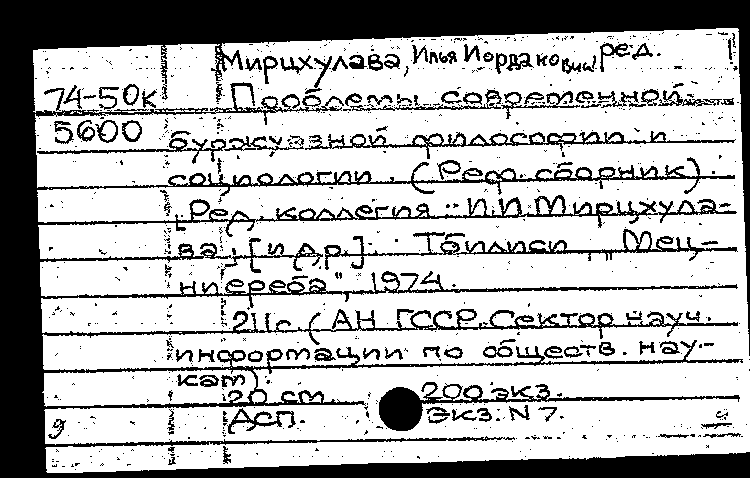 Мирцхулава, Илья Иорданович, ред.
74-50к Проблемы современной
5600 буржуазной философии и
социологии. (Реф. сборник).
[Ред. коллегия: И.И. Мирцхула-
ва [и др.]. Тбилиси, "Мец-
ниереба", 1974.
211с. (АН ГССР. Сектор науч.
информации по обществ. нау-
кам).
20 см. 200 экз.
Асп. Экз. N 7.